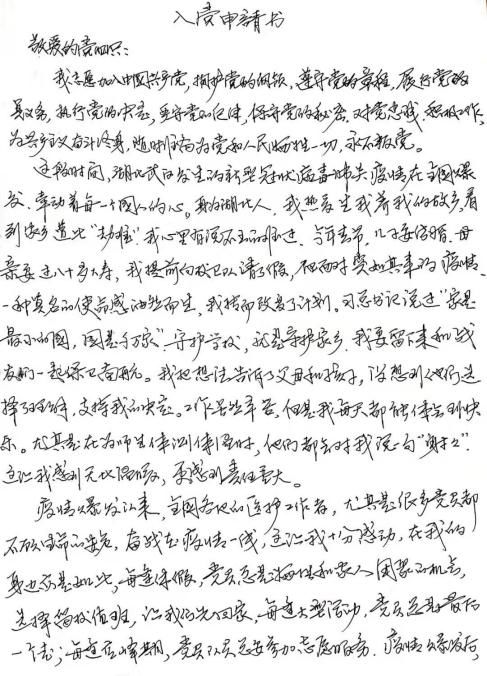 入党申请书
敬爱的党组织：
我志愿加入中国共产党，拥护党的纲领，遵守党的章程，履行党员
义务，执行党的决定，严守党的纪律，保守党的秘密，对党忠诚，积极工作，
为共产主义奋斗终身，随时准备为党和人民牺牲一切，永不叛党。
这段时间，湖北武汉发生的新型冠状病毒肺炎疫情在全国爆
发，牵动着每一个国人的心。身为湖北人，我热爱生我养我的故乡，看
到家乡遭此"劫难"我心里有说不出的难过。今年春节，儿子要结婚，母
亲要过八十岁大寿，我提前向校卫队请了假，但面对突如其来的疫情，
一种莫名的使命感油然而生，我转而改变了计划。习总书记说过"家是
最小的国，国是千万家"。守护学校，就是守护家乡，我要留下来和战
友们一起保卫南航。我把想法告诉了父母和孩子，没想到他们选
择了理解，支持我的决定。工作虽然辛苦，但是我每天都能体会到快
乐。尤其是在为师生体测体温时，他们都会对我说一句"辛苦了"，
这让我感到无比温暖，更感到责任重大。
疫情爆发以来，全国各地的医护工作者，尤其是很多党员都
不顾自身的安危，奋战在疫情一线，这让我十分感动，在我的
身边亦是如此，每逢休假，党员总是牺牲和家人团聚的机会，
选择留校值班，让我们先回家，每逢大型活动，党员总是最后
一个走；每逢高峰期，党员队员总要参加志愿服务。疫情爆发后，